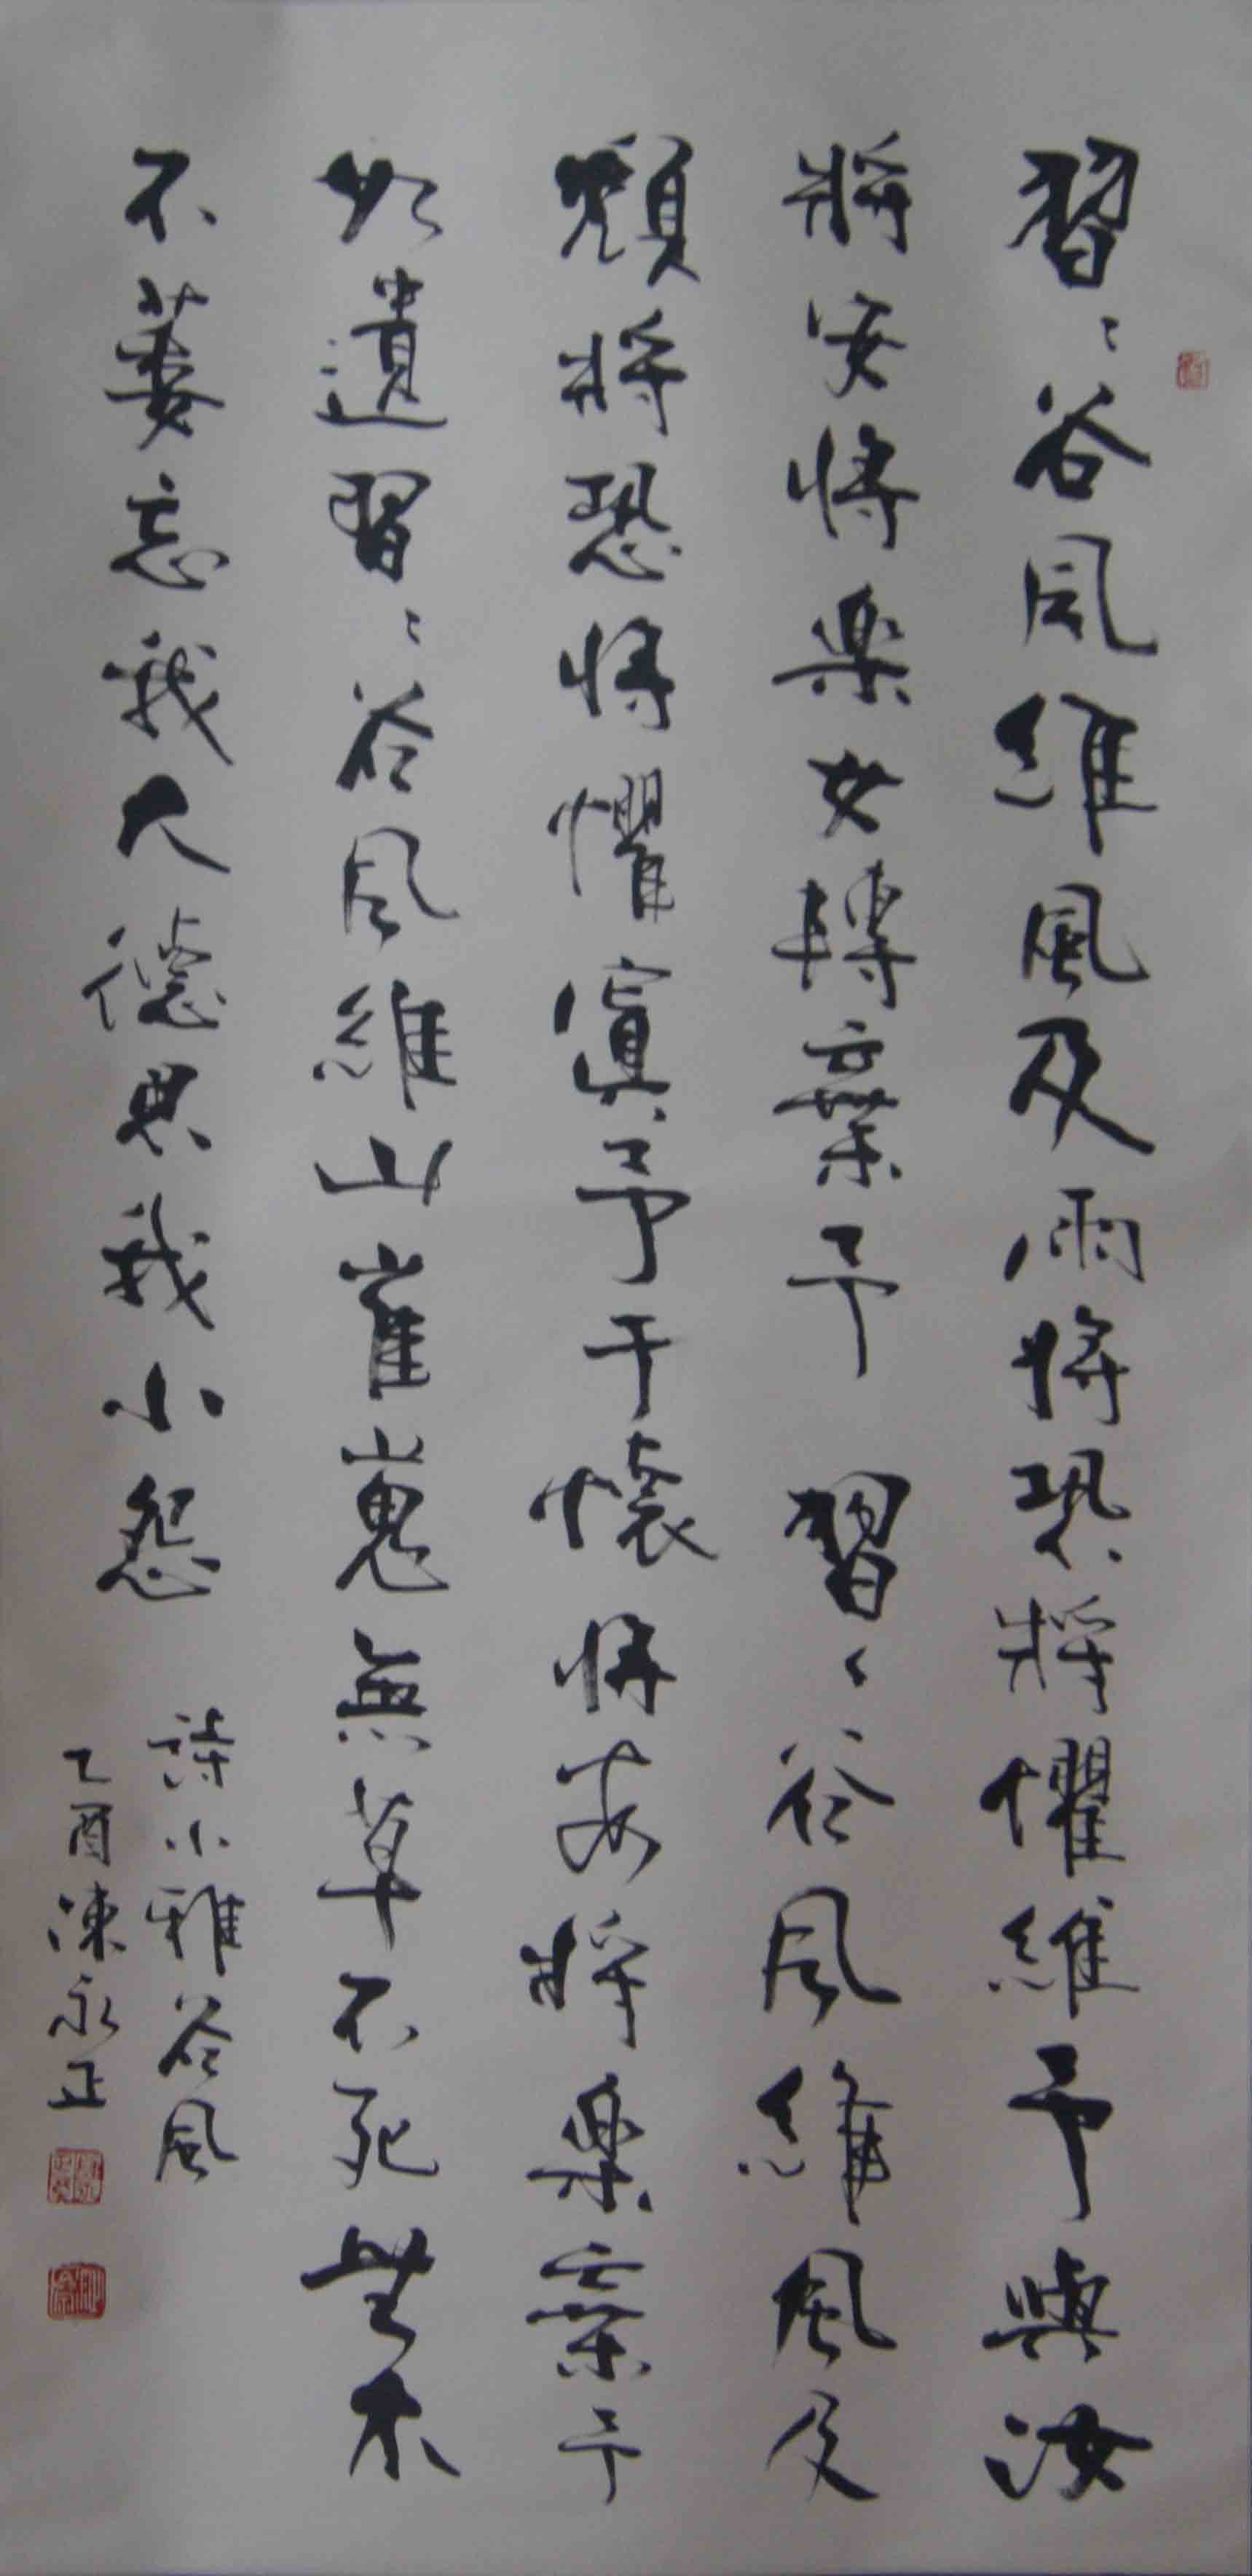 習〻谷風維風及雨將恐將懼維予與汝
將安將樂女轉棄予 習〻谷風維風及
頹將恐將懼寘予于懷將安將樂棄予
如遺習〻谷風維山崔嵬無草不死無木
不萎忘我大德思我小怨
詩小雅谷風
乙酉陳永正